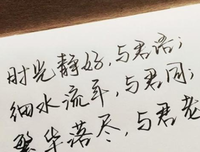 时光静好，与君语；
细水流年，与君同；
繁华落尽，与君老